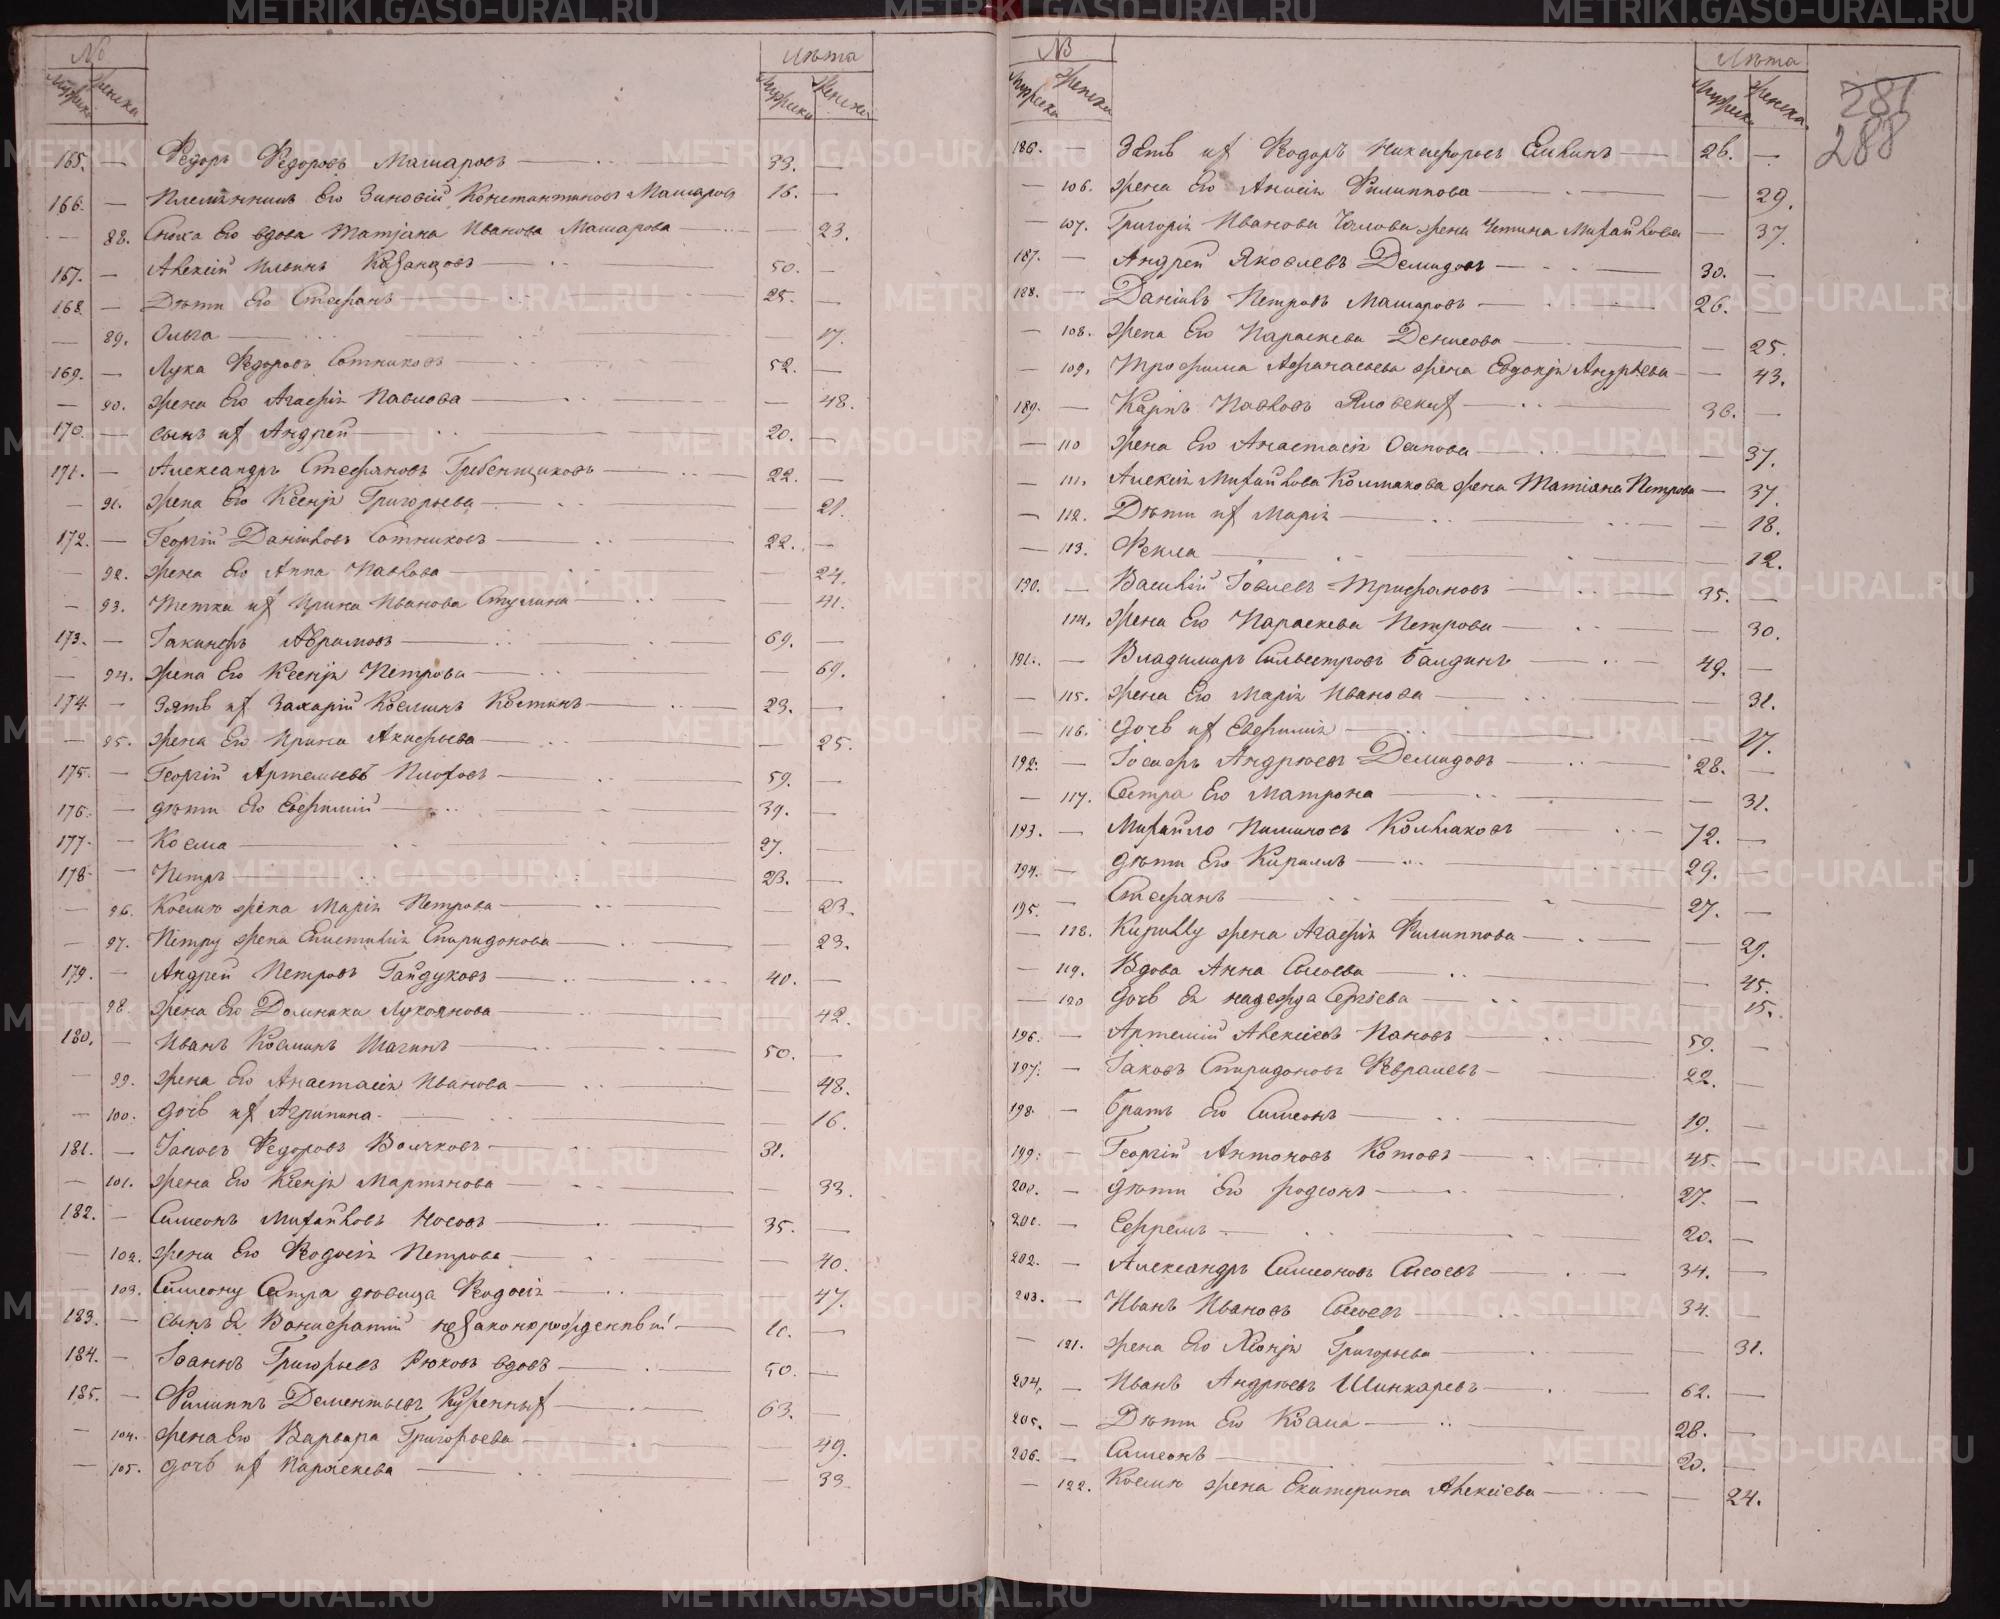 № Лѣта
Мужеска Женска Мужеска Женска
165. — Ѳедоръ Ѳедоровъ Машаровъ — 33. —
166. — Племянникъ Его Зиновій Константиновъ Машаровъ 16. —
— 88. Сноха Его вдова Татіана Иванова Машарова — — 23.
167. — Алексій Ильинъ Казанцовъ — 50. —
168. — Дѣти Его Стефанъ — 25. —
— 89. Ольга — — 17.
169. — Лука Ѳедоровъ Сотниковъ — 52. —
— 90. жена Его Агафія Павлова — — 48.
170. — сынъ их Андрей — 20. —
171. — Александръ Стефановъ Гребенщиковъ — 22. —
— 91. жена Его Ксенія Григорьева — — 21.
172. — Георгій Даніиловъ Сотниковъ — 22. —
— 92. жена Его Анна Павлова — — 24.
— 93. Тетка их Ирина Иванова — — 41.
173. — Іакинфъ Абрамовъ — 69. —
— 94. жена Его Ксенія Петрова — — 69.
174. — Зять их Захарій Косминъ Костинъ — 23. —
— 95. жена Его Ирина Акифьева — — 25.
175. — Георгій Артемьевъ Плоховъ — 59. —
176. — дѣти Его Евфимій — 34. —
177. — Косма — 27. —
178. — Петръ — 23. —
— 96. Космы жена Марія Петрова — — 23.
— 97. Петру жена Епистимія Спиридонова — — 23.
179. — Андрей Петровъ Гайдуковъ — 40. —
— 98. жена Его Домника Лукоянова — — 42.
180. — Иванъ Косминъ Шагинъ — 50. —
— 99. жена Его Анастасія Иванова — — 48.
— 100. дочь их Агрипина — — 16.
181. — Іаковъ Ѳедоровъ Волчковъ — 31.
— 101. жена Его Ксенія Мартынова — — 33.
182. — Симеонъ Михайловъ Носовъ — 35. —
— 102. жена Его Ѳеодосія Петрова — — 40.
— 103. Симеону Сестра дѣвица Ѳеодосія — — 47.
183. — Сынъ Ея Вонифатій незаконорожденный — 10. —
184. — Іоаннъ Григорьевъ Рюковъ вдовъ — 50. —
185. — Филиппъ Дементьевъ — 63. —
— 104. жена Его Варвара Григорьева — — 49.
— 105. дочь их Параскева — — 33.
№ Лѣта
Мужеска Женска Мужеска Женска
281
288
186. — Зять их Ѳеодоръ Никифоровъ Елькинъ — 26. —
— 106. жена Его Анисія Филиппова — — 29.
— 107. Григорія Иванова жена Михайлова — 37.
187. — Андрей Яковлевъ Демидовъ — 30. —
188. — Даніилъ Петровъ Машаровъ — 26. —
— 108. жена Его Параскева Денисова — — 25.
— 109. Трофима Афанасьева жена Евдокія Андрѣева — — 43.
189. — Карпъ Павловъ — 36. —
— 110 жена Его Анастасія Осипова — — 37.
— 111. Алексія Михайлова Колмакова жена Татіана Петрова — 37.
— 112. Дѣти их Марія — — 18.
— 113. Ѳекла — — 12.
190. — Василій Іовлевъ Трифановъ — 35. —
— 114. жена Его Параскева Петрова — — 30.
191. — Владимиръ Сильвестровъ Балдинъ — 49. —
— 115. жена Его Марія Иванова — — 31.
— 116. дочь их Евфимія — — 17.
192. — Іосифъ Андрѣевъ Демидовъ — 28. —
— 117. Сестра Его Матрона — — 31.
193. — Михайло Пименовъ Колмаковъ — 72. —
194. — дѣти Его Кириллъ — 29. —
195. — Стефанъ — 27. —
— 118. Кириллу жена Агафія Филиппова — — 29.
— 119. Вдова Анна Сысоева — — 45.
— 120 дочь Ея надежда Сергѣева — — 15.
196. — Артемій Алексіевъ Пановъ — 59. —
197. — Іаковъ Спиридоновъ Ѳевралевъ — 22. —
198. — братъ Его Симеонъ — 19. —
199. — Георгій Антоновъ Котовъ — 45. —
200. — дѣти Его родіонъ — 27. —
201. — Ефремъ — 20. —
202. — Александръ Симеоновъ Сысоевъ — 34. —
203. — Иванъ Ивановъ Сысоевъ — 34. —
— 121. жена Его Хіонія Григорьева — — 31.
204. — Иванъ Андрѣевъ Шинкаревъ — 62. —
205. — Дѣти Его Косма — 28. —
206. — Симеонъ — 20. —
— 122. Космы жена Екатерина Алексіева — — 24.
METRIKI.GASO-URAL.RU